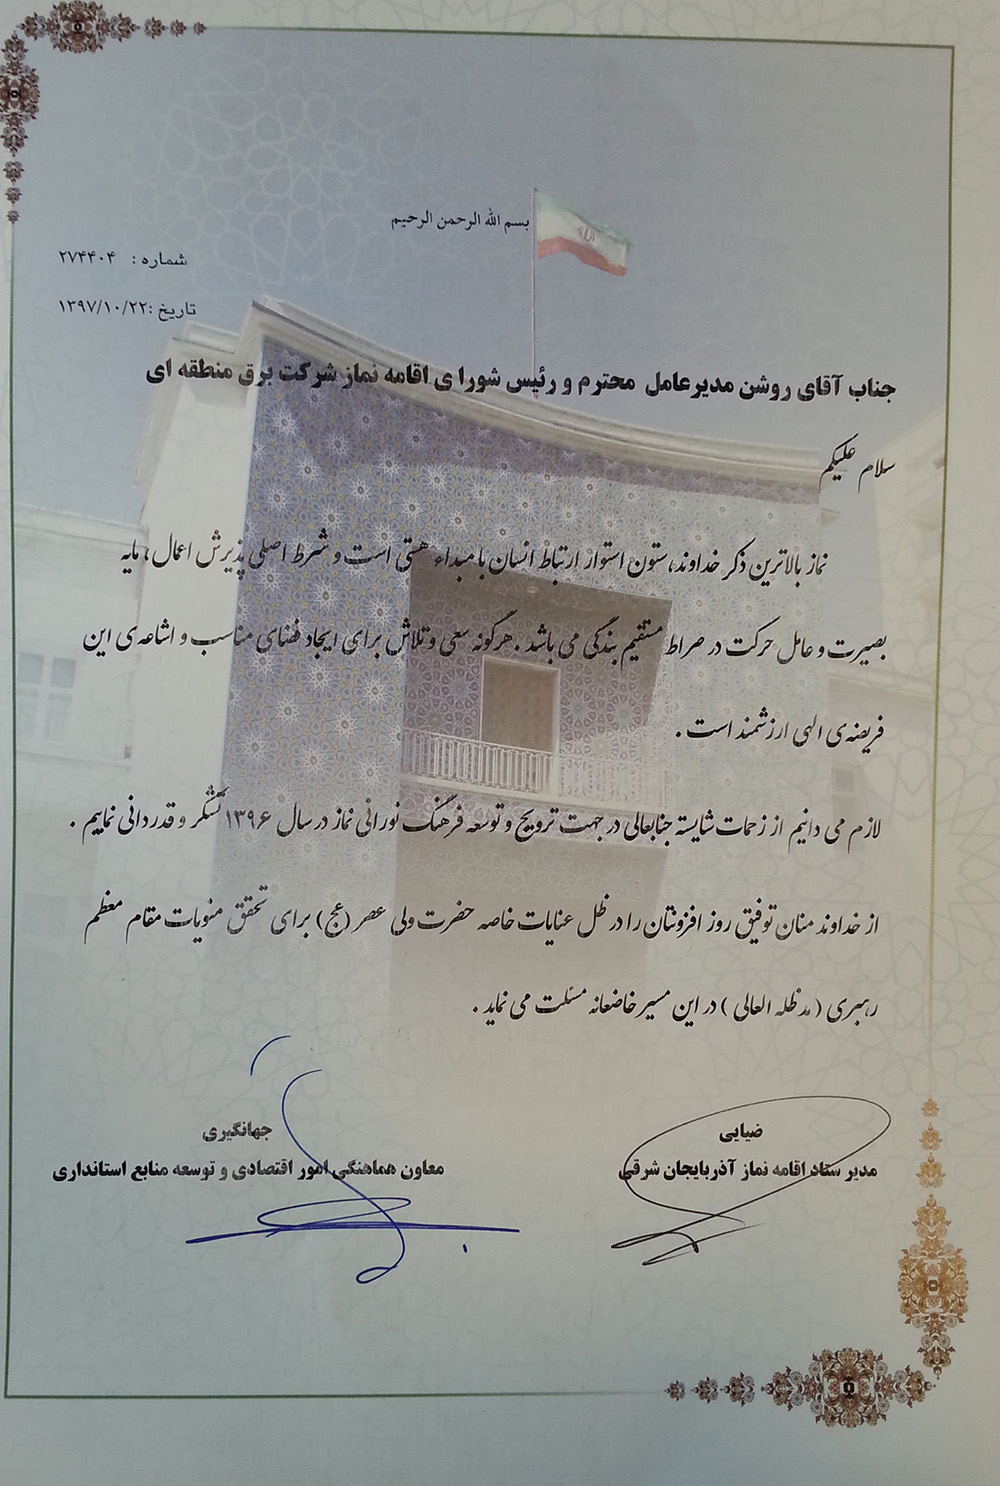 بسم الله الرحمن الرحیم
شماره : ۲۷۴۴۰۴
تاریخ :۱۳۹۷/۱۰/۲۲
جناب آقای روشن مدیرعامل محترم و رئیس شورا ی اقامه نماز شرکت برق منطقه ای
سلام علیکم
نماز بالاترین ذکر خداوند، ستون استوار ارتباط انسان با مبداء هستی است و شرط اصلی پذیرش اعمال، مایه
بصیرت و عامل حرکت در صراط مستقیم بندگی می باشد . هرگونه سعی و تلاش برای ایجاد فضای مناسب و اشاعه‌ی این
فریضه‌ی الهی ارزشمند است .
لازم می دانیم از زحمات شایسته جنابعالی در جهت ترویج و توسعه فرهنگ نورانی نماز در سال ۱۳۹۶ تشکر و قدردانی نماییم .
از خداوند منان توفیق روز افزونتان را در ظل عنایات خاصه حضرت ولی عصر (عج) برای تحقق منویات مقام معظم
رهبری (مدظله العالی ) در این مسیر خاضعانه مسئلت می نماید .
ضیایی
مدیر ستاد اقامه نماز آذربایجان شرقی
جهانگیری
معاون هماهنگی امور اقتصادی و توسعه منابع استانداری